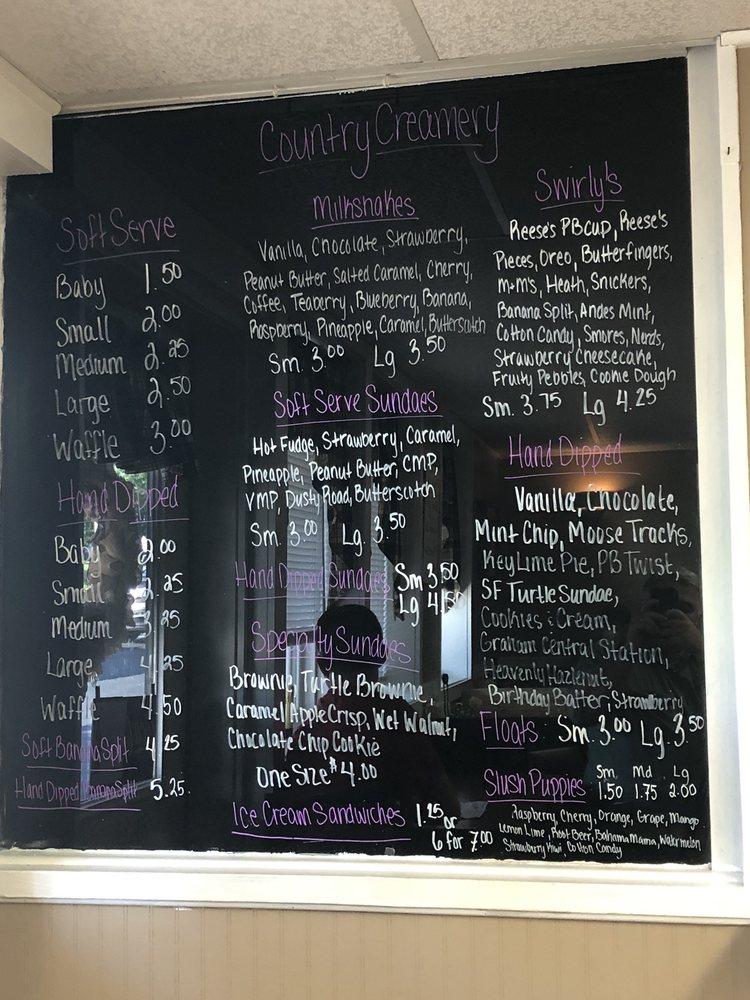 Country Creamery
Soft Serve
Baby 1.50
Small 2.00
Medium 2.25
Large 2.50
Waffle 3.00
Hand Dipped
Baby 2.00
Small .25
Medium .25
Large 4.25
Waffle 4.50
Soft Banana Split 4.25
Hand Dipped Banana Split 5.25
Milkshakes
Vanilla, Chocolate, Strawberry,
Peanut Butter, Salted Caramel, Cherry,
Coffee, Teaberry, Blueberry, Banana,
Raspberry, Pineapple, Caramel, Butterscotch
Sm. 3.00 Lg 3.50
Soft Serve Sundaes
Hot Fudge, Strawberry, Caramel,
Pineapple, Peanut Butter, CMP,
VMP, Dusty Road, Butterscotch
Sm. 3.00 Lg. 3.50
Hand Dipped Sundaes Sm 3.50
Lg 4.50
Specialty Sundaes
Brownie, Turtle Brownie,
Caramel Apple Crisp, Wet Walnut,
Chocolate Chip Cookie
One Size $4.00
Ice Cream Sandwiches 1.25 or
6 for 7.00
Swirly's
Reese's PB Cup, Reese's
Pieces, Oreo, Butterfingers,
m+m's, Heath, Snickers,
Banana Split, Andes Mint,
Cotton Candy, Smores, Nerds,
Strawberry Cheesecake,
Fruity Pebbles, Cookie Dough
Sm. 3.75 Lg 4.25
Hand Dipped
Vanilla, Chocolate,
Mint Chip, Moose Tracks,
Key Lime Pie, PB Twist,
SF Turtle Sundae,
Cookies & Cream,
Graham Central Station,
Heavenly Hazlenut,
Birthday Batter, Strawberry
Floats Sm. 3.00 Lg. 3.50
Slush Puppies Sm 1.50 Md 1.75 Lg 2.00
Raspberry, Cherry, Orange, Grape, Mango
Lemon Lime, Root Beer, Bahama Mama, Watermelon
Strawberry Kiwi, Cotton Candy